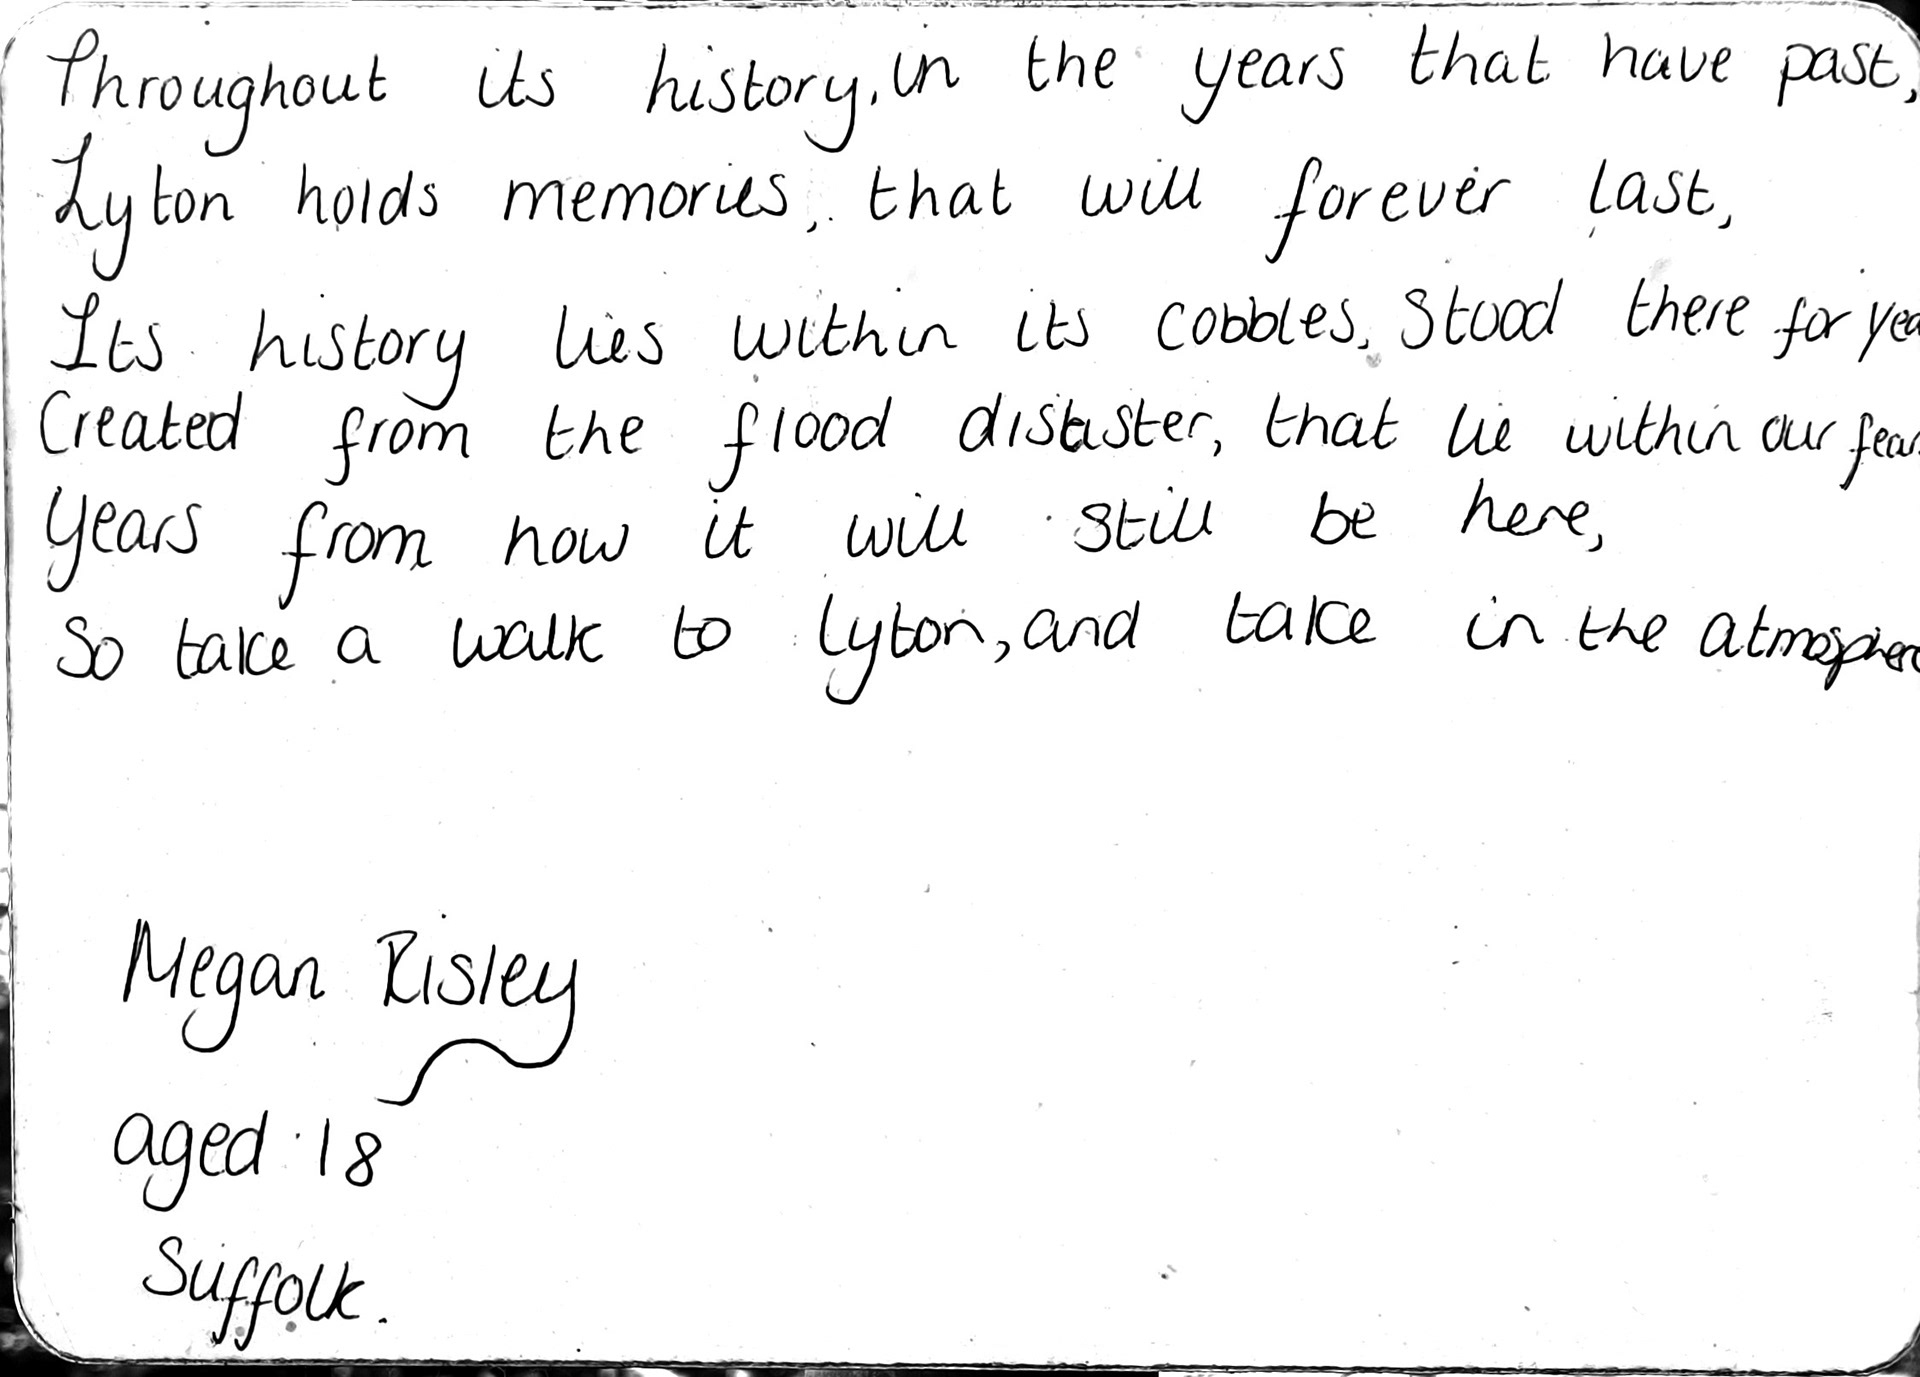 Throughout its history, in the years that have past,
Lyton holds memories, that will forever last,
Its history lies within its cobbles, stood there for yea
Created from the flood disaster, that lie within our fear
Years from now it will still be here,
So take a walk to Lyton, and take in the atmosphere
Megan Risley
aged 18
Suffolk.